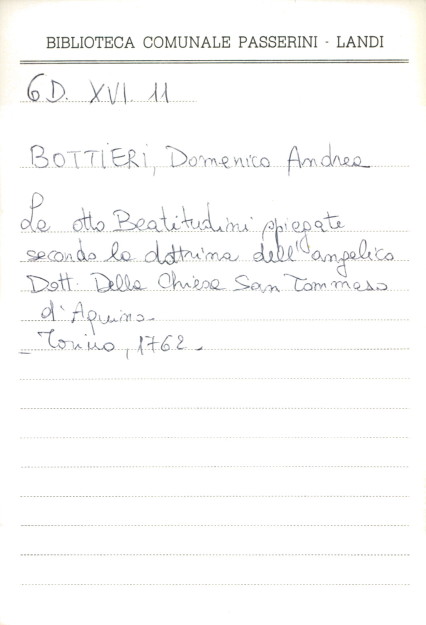 BIBLIOTECA COMUNALE PASSERINI - LANDI
6D. XVI. 11
BOTTIERI, Domenico Andrea
Le otto Beatitudini spiegate
secondo la dottrina dell'angelico
Dott. Della Chiesa San Tommaso
d'Aquino.
- Torino, 1762.